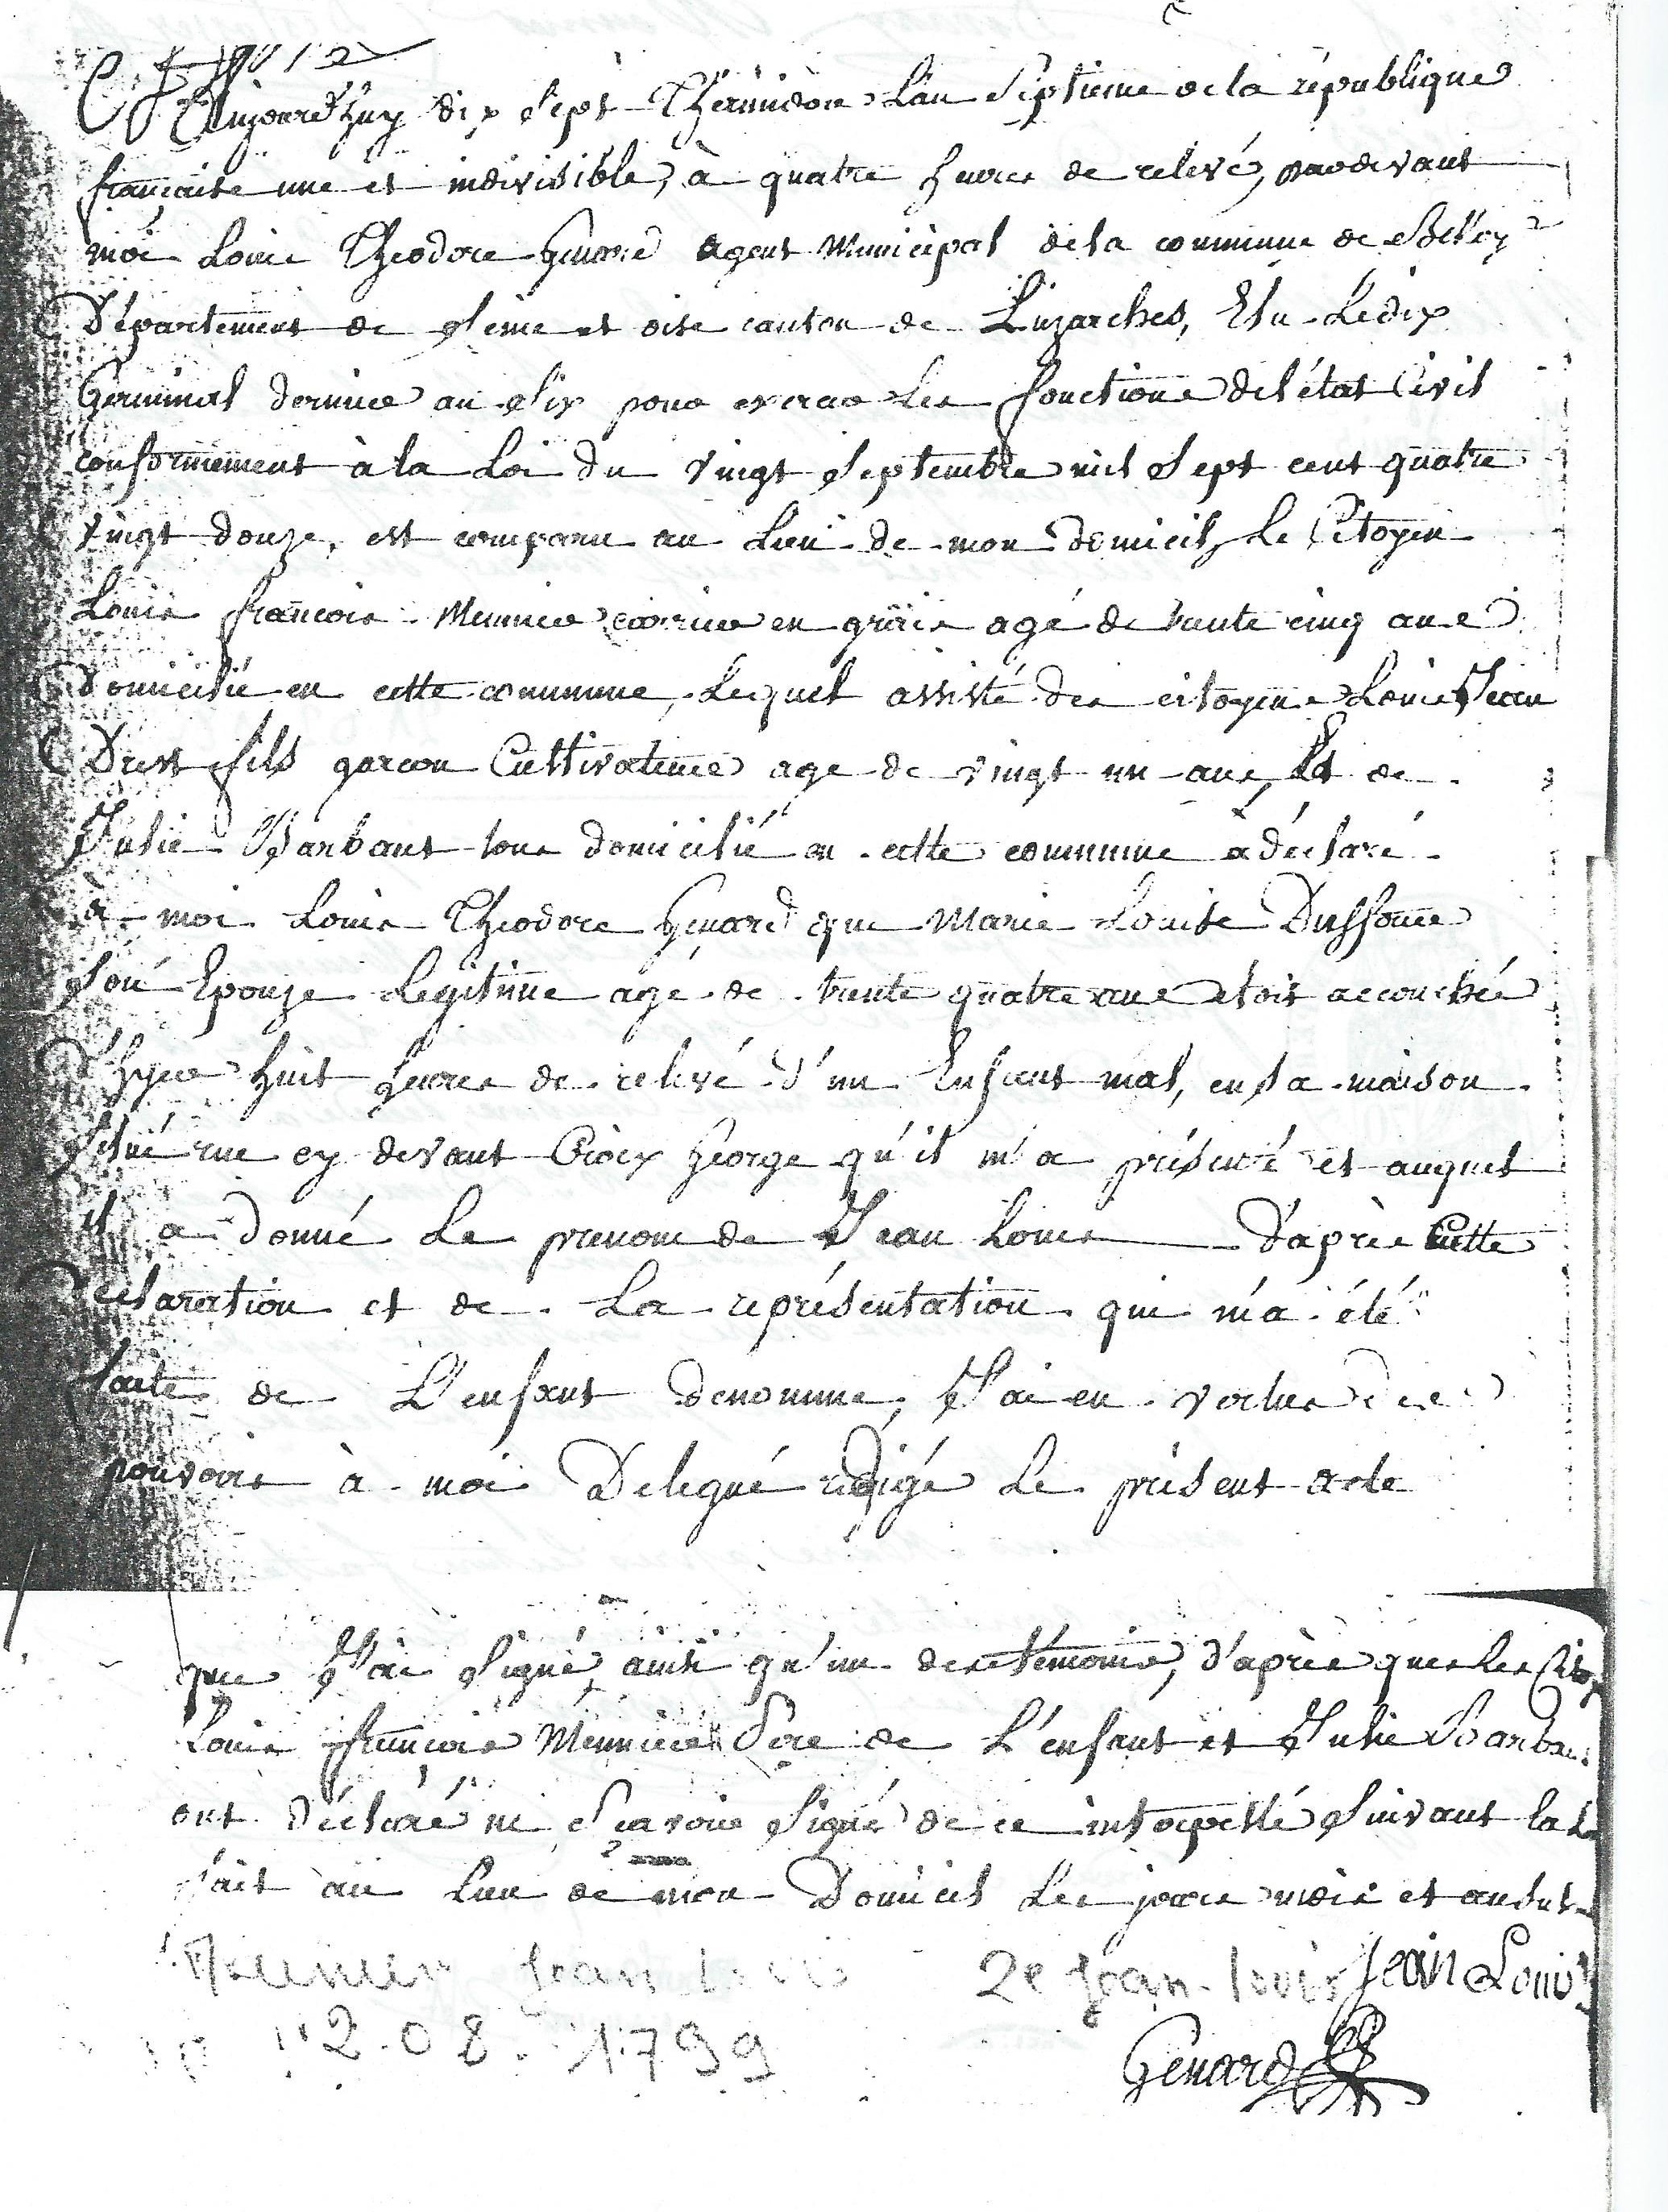 Aujourd'huy dix sept Thermidore L'an Septieme de la république
française une et indivisible, à quatre heures de relevé, pardevant
moi Louis Theodore Genard agent Municipal de la commune de Belloy
Département de Seine et oise canton de Luzarches, Elu Le dix
Germinal dernier an Six pour exercer Les fonctions de l'état Civil
conformement à la Loi du vingt Septembre mil Sept cent quatre
vingt douze, est comparu au Lieu de mon domicil, Le Citoyen
Louis françois Meunier en grais agé de trente cinq ans
domicilié en cette commune, Lequel assisté des citoyens Louis Jean
fils garcon Cultivateur age de vingt un ans, Et de
Julie Barbant tous domicilié en cette commune a déclaré
à moi Louis Theodore Genard que Marie Louise
Son Epouze Légitime agé de trente quatre ans etoit accouchée
d'hyer huit heures de relevé d'un Enfant mal, en sa maison
Situé rue cy devant Croix George qu'il m'a présenté et auquel
il a donné Le prenom de Jean Louis d'après Cette
Déclaration et de La représentation qui m'a été
faite de L'enfant denommé, J'ai en vertus des
pouvoirs à moi Delegué rédigé Le présent acte
que J'ai Signé, ainsi qu'un des témoins, d'après que Les Cit
Louis françois Meunier Père de L'enfant et Julie Barban
ont déclaré ne Scavoir Signé de ce interpellé Suivant la L
fait au Lieu de mon Domicil Les jours mois et an sus
Meunier Jean Louis 2e Jean-louis Jean Louis
2.08.1799 Genard